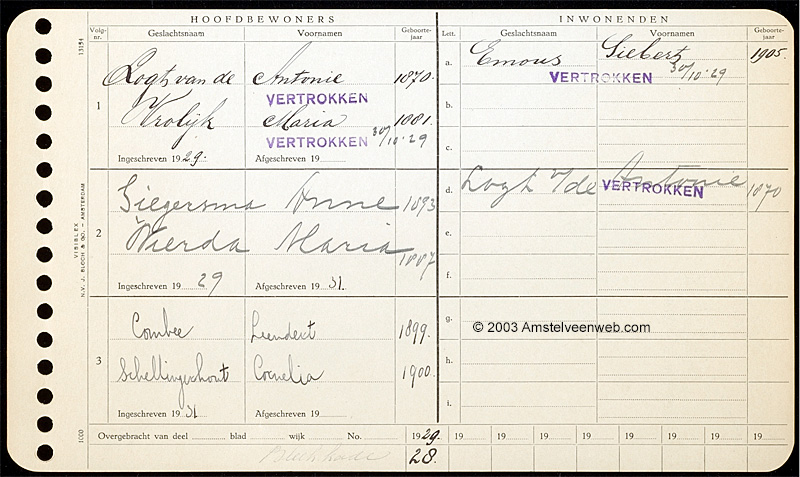 HOOFDBEWONERS INWONENDEN
Volg-nr. Geslachtsnaam Voornamen Geboorte-jaar Lett. Geslachtsnaam Voornamen Geboorte-jaar
13154
1
Logt, van de Antonie 1870.
VERTROKKEN
Vrolijk Maria 1881.
VERTROKKEN 30/10-29
Ingeschreven 1929. Afgeschreven 19
a. Emous Siebert 1905.
VERTROKKEN 30/10-29
b.
c.
2
Siegersma Anne 1893
Wierda Maria 1887
Ingeschreven 1929 Afgeschreven 1931.
d. Logt v/de Antonie 1870
VERTROKKEN
e.
f.
VISIBLEX
N.V. J. BLOCH & CO. - AMSTERDAM
3
Combee Leendert 1899.
Schellingerhout Cornelia 1900.
Ingeschreven 1931 Afgeschreven 19
g.
© 2003 Amstelveenweb.com
h.
i.
1000
Overgebracht van deel blad wijk No. 1929. 19 19 19 19 19 19 19 19
28.